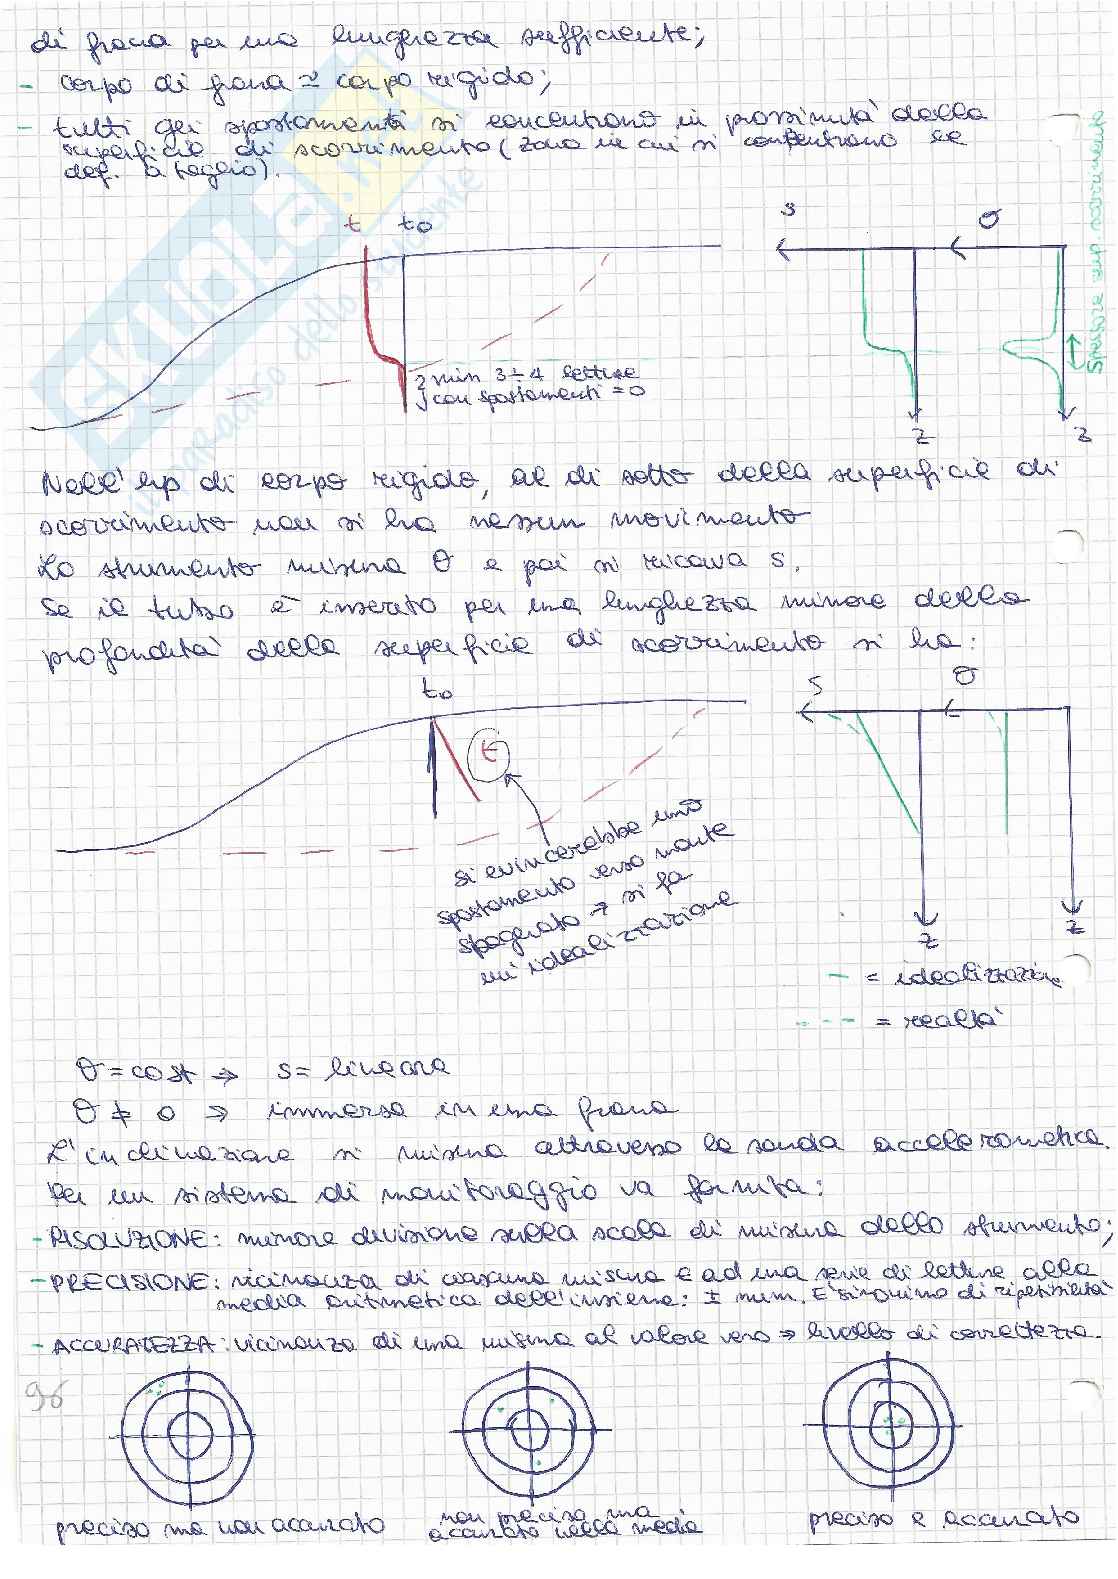 di frana per una lunghezza sufficiente;
- corpo di frana ≃ corpo rigido;
- tutti gli spostamenti si concentrano in prossimità della
superficie di scorrimento (zona in cui si concentrano le
def. a taglio).
t t₀
s θ
Spessore sup scorrimento
min 3÷4 letture
con spostamenti = 0
z z
Nell'hp di corpo rigido, al di sotto della superficie di
scorrimento non si ha nessun movimento
Lo strumento misura θ e poi si ricava s.
Se il tubo è inserito per una lunghezza minore della
profondità della superficie di scorrimento si ha:
t₀
s θ
t
si evincerebbe uno
spostamento verso monte
sbagliato → si fa
un'idealizzazione
z z
— = idealizzazione
--- = realtà
θ = cost ⇒ s = lineare
θ ≠ 0 ⇒ immerso in una frana
L'inclinazione si misura attraverso la sonda accelerometrica.
Per un sistema di monitoraggio va fornita:
- RISOLUZIONE: minore divisione sulla scala di misura dello strumento;
- PRECISIONE: vicinanza di ciascuna misura ad una serie di letture alla
media aritmetica dell'insieme: ± mm. E' sinonimo di ripetibilità
- ACCURATEZZA: vicinanza di una misura al valore vero ⇒ livello di correttezza.
96
preciso ma non accurato
non preciso ma
accurato nella media
preciso e accurato
SKUOLA.NET
il paradiso dello studente